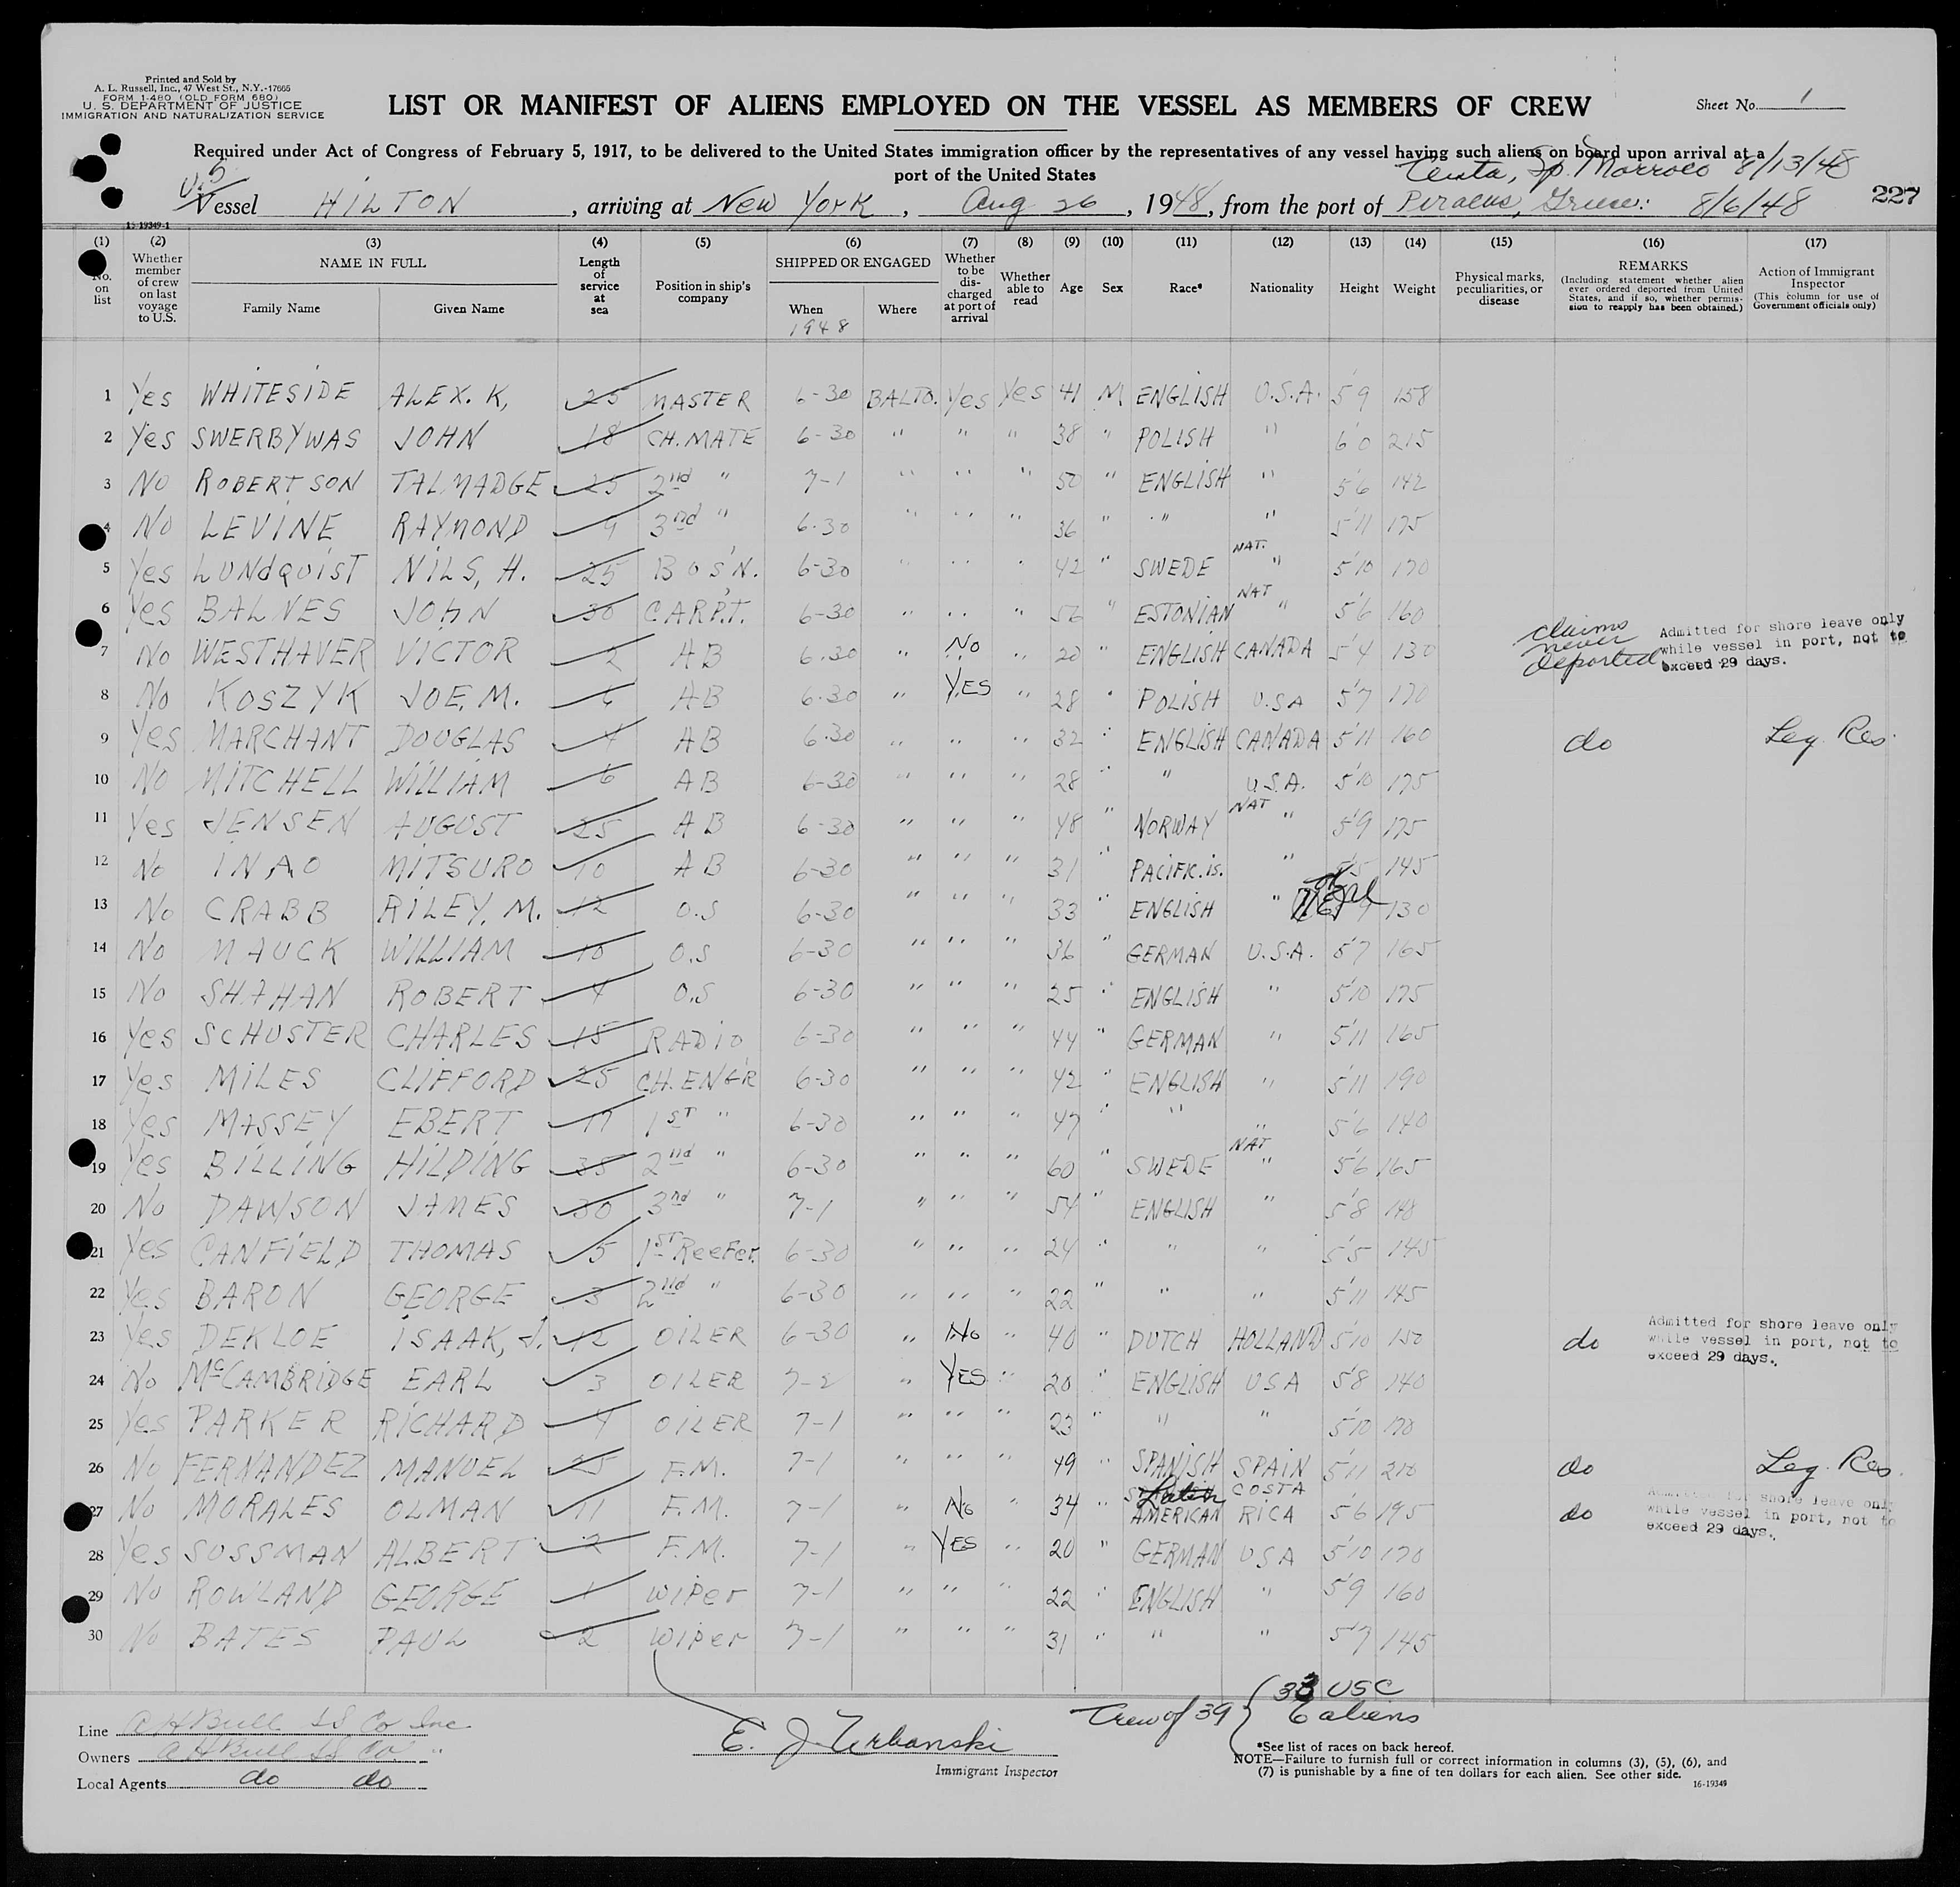 Printed and Sold by
A. L. Russell, Inc., 47 West St., N.Y.-17665
FORM I-480 (OLD FORM 680)
U. S. DEPARTMENT OF JUSTICE
IMMIGRATION AND NATURALIZATION SERVICE
LIST OR MANIFEST OF ALIENS EMPLOYED ON THE VESSEL AS MEMBERS OF CREW
Sheet No. 1
Required under Act of Congress of February 5, 1917, to be delivered to the United States immigration officer by the representatives of any vessel having such aliens on board upon arrival at a
port of the United States
Ceuta, Sp. Morroco 8/13/48
U.S.
Vessel HILTON, arriving at New York, Aug 26, 1948, from the port of Piraeus, Greece: 8/6/48
227
15-19349-1
(1) (2) (3) (4) (5) (6) (7) (8) (9) (10) (11) (12) (13) (14) (15) (16) (17)
No. on list
Whether member of crew on last voyage to U.S.
NAME IN FULL
Family Name Given Name
Length of service at sea
Position in ship's company
SHIPPED OR ENGAGED
When Where
1948
Whether to be discharged at port of arrival
Whether able to read
Age Sex Race* Nationality Height Weight
Physical marks, peculiarities, or disease
REMARKS
(Including statement whether alien ever ordered deported from United States, and if so, whether permission to reapply has been obtained.)
Action of Immigrant Inspector
(This column for use of Government officials only)
1 Yes WHITESIDE ALEX. K, 25 MASTER 6-30 BALTO. Yes Yes 41 M ENGLISH U.S.A. 5'9 158
2 Yes SWERBYWAS JOHN 18 CH. MATE 6-30 " " " 38 " POLISH " 6'0 215
3 No ROBERTSON TALMADGE 25 2nd " 7-1 " " " 50 " ENGLISH " 5'6 142
4 No LEVINE RAYMOND 9 3nd " 6-30 " " " 36 " " " 5'11 175
5 Yes LUNDQUIST NILS, H. 25 BOS'N. 6-30 " " " 42 " SWEDE NAT. " 5'10 170
6 Yes BALNES JOHN 30 CARPT. 6-30 " " " 56 " ESTONIAN NAT " 5'6 160
7 No WESTHAVER VICTOR 2 AB 6-30 " No " 20 " ENGLISH CANADA 5'4 130 claims never deported Admitted for shore leave only while vessel in port, not to exceed 29 days.
8 No KOSZYK JOE. M. 6 AB 6-30 " YES " 28 " POLISH U.S.A 5'7 170
9 Yes MARCHANT DOUGLAS 4 AB 6-30 " " " 32 " ENGLISH CANADA 5'11 160 do Leg. Res.
10 No MITCHELL WILLIAM 6 AB 6-30 " " " 28 " " U.S.A. 5'10 175
11 Yes JENSEN AUGUST 25 AB 6-30 " " " 48 " NORWAY NAT " 5'9 175
12 No INAO MITSURO 10 AB 6-30 " " " 31 " PACIFIC. is. " 5'5 145
13 No CRABB RILEY, M. 12 O.S 6-30 " " " 33 " ENGLISH " 130
14 No MAUCK WILLIAM 10 O.S 6-30 " " " 36 " GERMAN U.S.A. 5'7 165
15 No SHAHAN ROBERT 4 O.S 6-30 " " " 25 " ENGLISH " 5'10 175
16 Yes SCHUSTER CHARLES 15 RADIO 6-30 " " " 44 " GERMAN " 5'11 165
17 Yes MILES CLIFFORD 25 CH. ENG'R 6-30 " " " 42 " ENGLISH " 5'11 190
18 Yes MASSEY EBERT 17 1ST " 6-30 " " " 47 " " " 5'6 140
19 Yes BILLING HILDING 35 2nd " 6-30 " " " 60 " SWEDE NAT " 5'6 165
20 No DAWSON JAMES 30 3nd " 7-1 " " " 54 " ENGLISH " 5'8 148
21 Yes CANFIELD THOMAS 5 1ST Reefer. 6-30 " " " 24 " " " 5'5 145
22 Yes BARON GEORGE 3 2nd " 6-30 " " " 22 " " " 5'11 145
23 Yes DEKLOE ISAAK, J. 12 OILER 6-30 " No " 40 " DUTCH HOLLAND 5'10 150 do Admitted for shore leave only while vessel in port, not to exceed 29 days.
24 No McCAMBRIDGE EARL 3 OILER 7-2 " YES " 20 " ENGLISH USA 5'8 140
25 Yes PARKER RICHARD 4 OILER 7-1 " " " 23 " " " 5'10 170
26 No FERNANDEZ MANUEL 25 F.M. 7-1 " " " 49 " SPANISH SPAIN 5'11 210 do Leg. Res.
27 No MORALES OLMAN 11 F.M. 7-1 " No " 34 " Latin AMERICAN COSTA RICA 5'6 195 do Admitted for shore leave only while vessel in port, not to exceed 29 days.
28 Yes SUSSMAN ALBERT 2 F.M. 7-1 " YES " 20 " GERMAN USA 5'10 170
29 No ROWLAND GEORGE 1 wiper 7-1 " " " 22 " ENGLISH " 5'9 160
30 No BATES PAUL 2 wiper 7-1 " " " 31 " " " 5'7 145
Line A H Bull SS Co Inc
Owners A H Bull SS Co "
Local Agents do do
E. J. Urbanski
Immigrant Inspector
Crew of 39 { 33 USC
6 aliens
*See list of races on back hereof.
NOTE—Failure to furnish full or correct information in columns (3), (5), (6), and
(7) is punishable by a fine of ten dollars for each alien. See other side.
16-19349